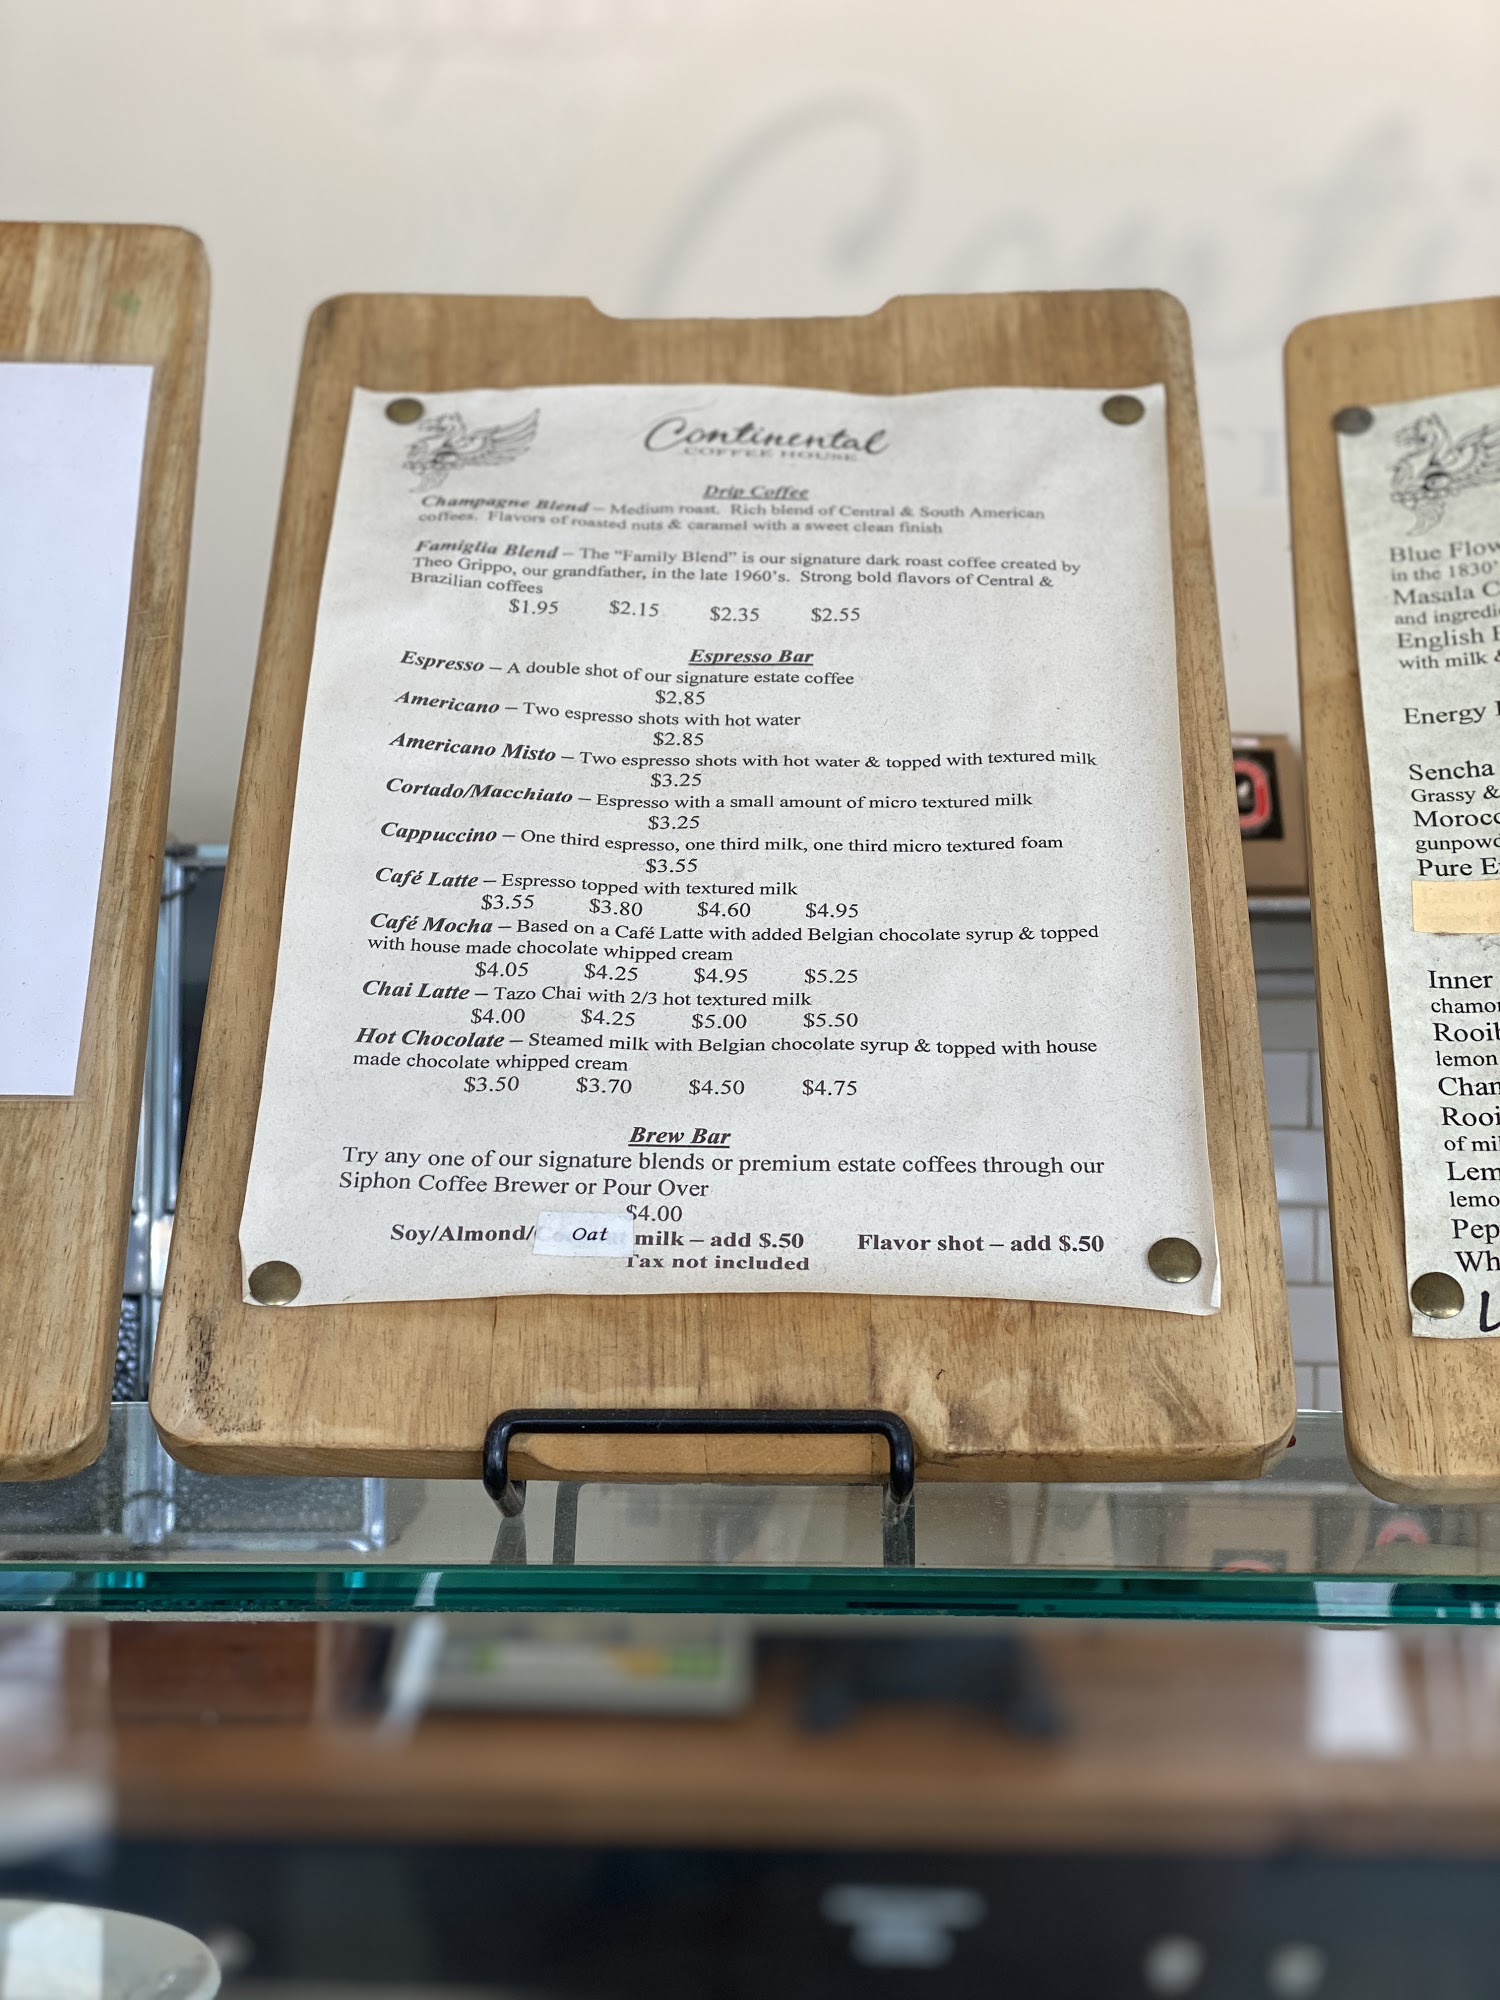 Conti
Continental
COFFEE HOUSE
Drip Coffee
Champagne Blend – Medium roast. Rich blend of Central & South American
coffees. Flavors of roasted nuts & caramel with a sweet clean finish
Famiglia Blend – The "Family Blend" is our signature dark roast coffee created by
Theo Grippo, our grandfather, in the late 1960's. Strong bold flavors of Central &
Brazilian coffees
$1.95 $2.15 $2.35 $2.55
Espresso Bar
Espresso – A double shot of our signature estate coffee
$2.85
Americano – Two espresso shots with hot water
$2.85
Americano Misto – Two espresso shots with hot water & topped with textured milk
$3.25
Cortado/Macchiato – Espresso with a small amount of micro textured milk
$3.25
Cappuccino – One third espresso, one third milk, one third micro textured foam
$3.55
Café Latte – Espresso topped with textured milk
$3.55 $3.80 $4.60 $4.95
Café Mocha – Based on a Café Latte with added Belgian chocolate syrup & topped
with house made chocolate whipped cream
$4.05 $4.25 $4.95 $5.25
Chai Latte – Tazo Chai with 2/3 hot textured milk
$4.00 $4.25 $5.00 $5.50
Hot Chocolate – Steamed milk with Belgian chocolate syrup & topped with house
made chocolate whipped cream
$3.50 $3.70 $4.50 $4.75
Brew Bar
Try any one of our signature blends or premium estate coffees through our
Siphon Coffee Brewer or Pour Over
$4.00
Soy/Almond/ Oat milk – add $.50 Flavor shot – add $.50
Tax not included
Blue Flow
in the 1830'
Masala C
and ingredi
English B
with milk &
Energy
Sencha
Grassy &
Morocc
gunpowd
Pure E
Inner
chamo
Rooib
lemon
Cham
Rooi
of mil
Lem
lemo
Pep
Wh